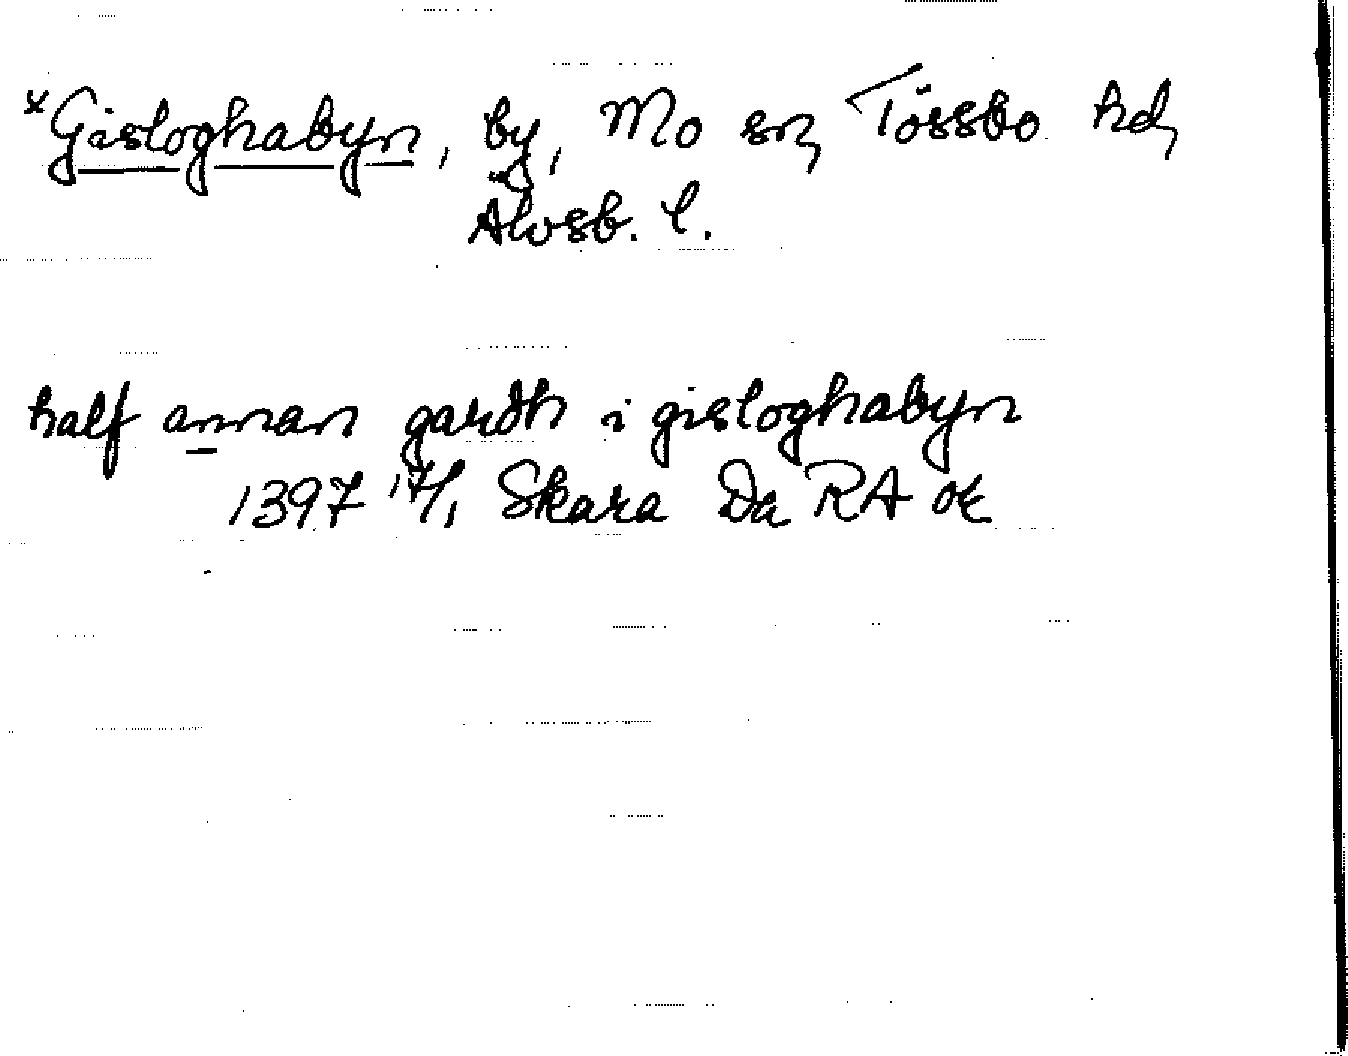 *Gisloghabyn, by, Mo sn, Tössbo hd,
Älvsb. l.
half annan gardh i gisloghabyn
1397 17/1 Skara Da RA or